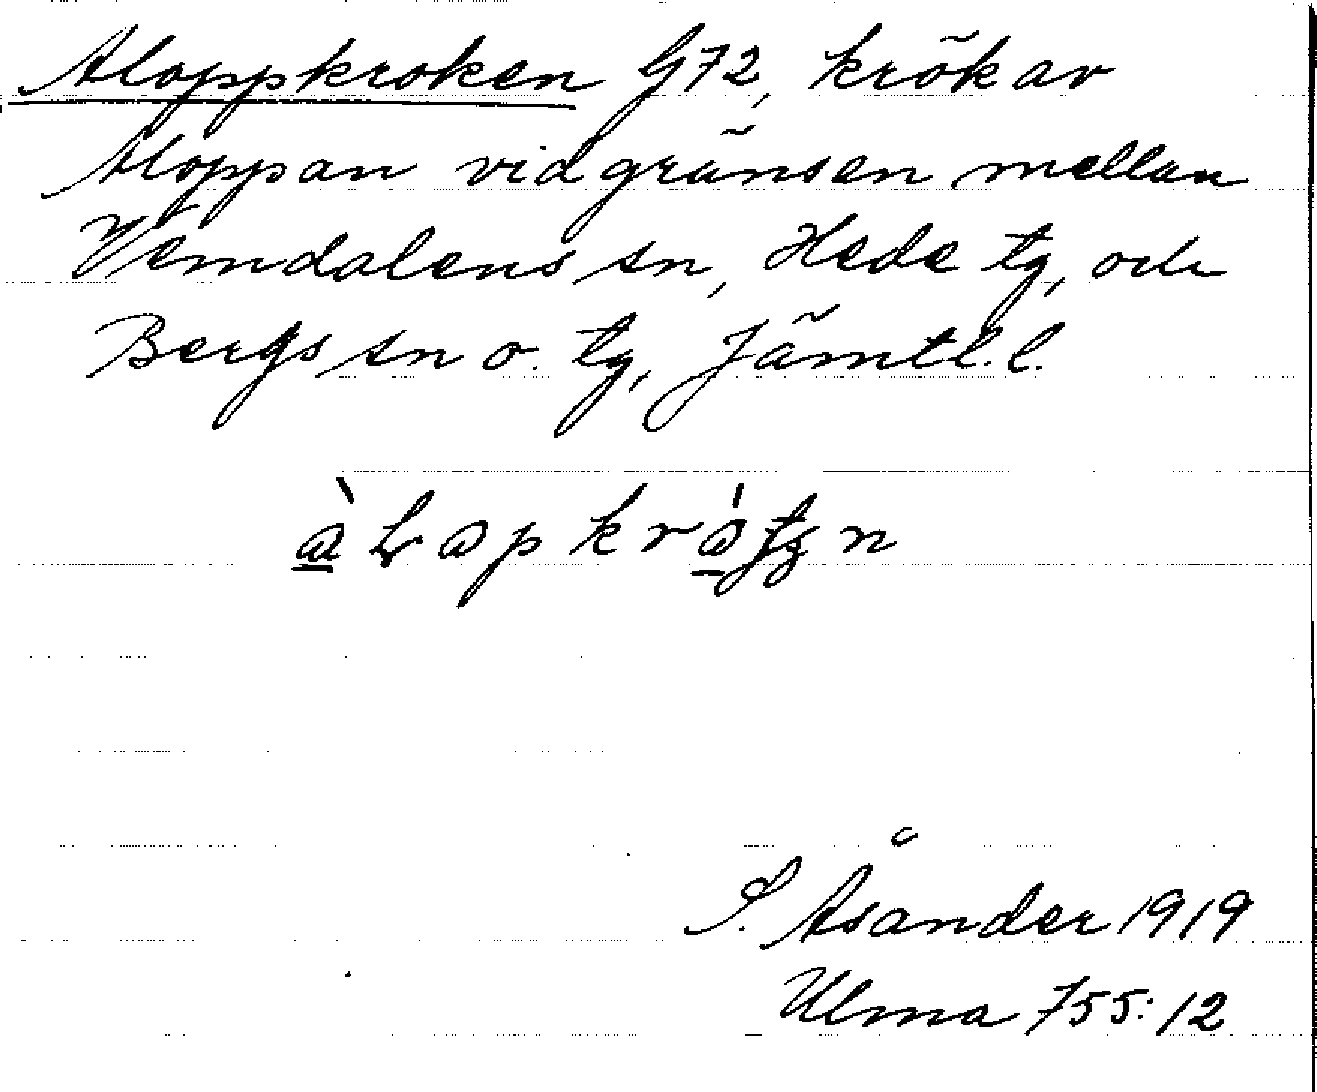 Aloppkroken G72, krök av
Aloppan vid gränsen mellan
Vemdalens sn, Hede tg, och
Bergs sn o. tg, Jämtl. l.
S. Åsander 1919
Ulma 755:12